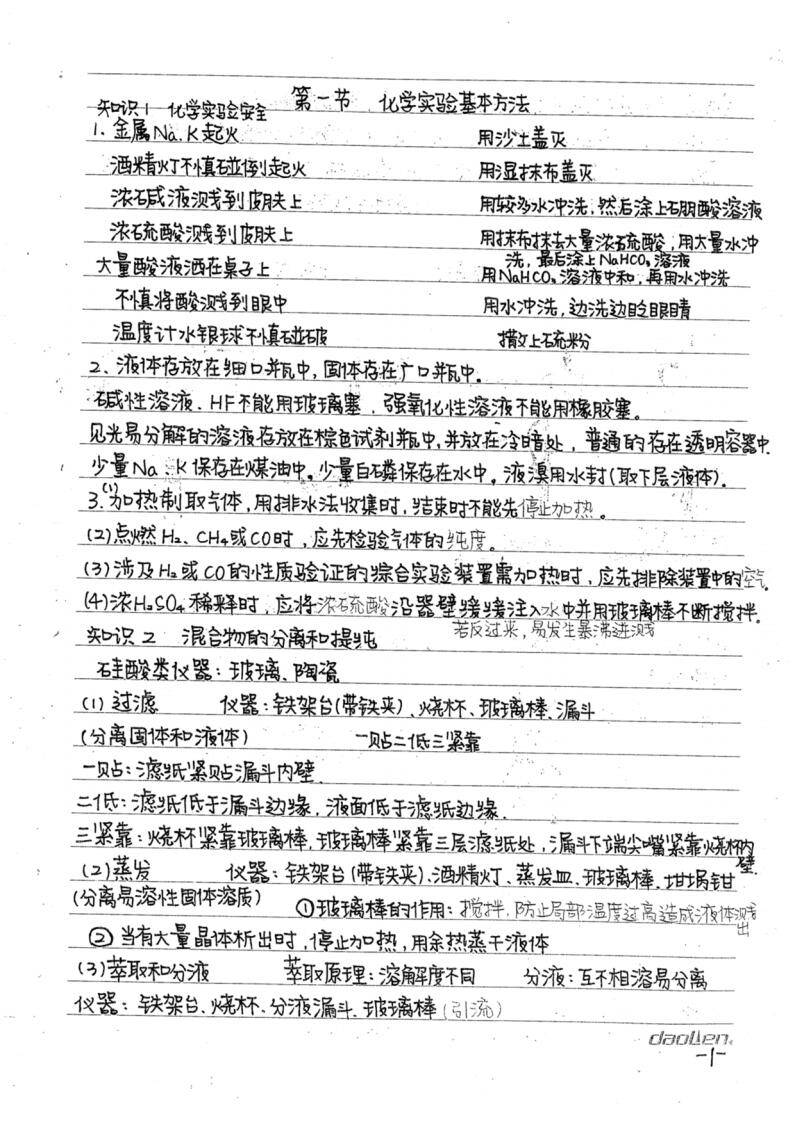 第一节 化学实验基本方法
知识1 化学实验安全
1. 金属Na、K起火 用沙土盖灭
酒精灯不慎碰倒起火 用湿抹布盖灭
浓碱液溅到皮肤上 用较多水冲洗,然后涂上硼酸溶液
浓硫酸溅到皮肤上 用抹布抹去大量浓硫酸,用大量水冲
洗,最后涂上NaHCO₃溶液
大量酸液洒在桌子上 用NaHCO₃溶液中和,再用水冲洗
不慎将酸溅到眼中 用水冲洗,边洗边眨眼睛
温度计水银球不慎碰破 撒上硫粉
2、液体存放在细口瓶中,固体存在广口瓶中。
碱性溶液、HF不能用玻璃塞,强氧化性溶液不能用橡胶塞。
见光易分解的溶液存放在棕色试剂瓶中,并放在冷暗处,普通的存在透明容器中.
少量Na、K保存在煤油中。少量白磷保存在水中。液溴用水封(取下层液体).
3.(1)加热制取气体,用排水法收集时,结束时不能先停止加热。
(2)点燃H₂、CH₄或CO时,应先检验气体的纯度。
(3)涉及H₂或CO的性质验证的综合实验装置需加热时,应先排除装置中的空气.
(4)浓H₂SO₄稀释时,应将浓硫酸沿器壁缓缓注入水中并用玻璃棒不断搅拌.
若反过来,易发生暴沸迸溅
知识2 混合物的分离和提纯
硅酸类仪器:玻璃、陶瓷
(1)过滤 仪器:铁架台(带铁夹)、烧杯、玻璃棒、漏斗
(分离固体和液体) 一贴二低三紧靠
一贴:滤纸紧贴漏斗内壁.
二低:滤纸低于漏斗边缘,液面低于滤纸边缘.
三紧靠:烧杯紧靠玻璃棒,玻璃棒紧靠三层滤纸处,漏斗下端尖嘴紧靠烧杯内
壁.
(2)蒸发 仪器:铁架台(带铁夹)、酒精灯、蒸发皿、玻璃棒、坩埚钳
(分离易溶性固体溶质) ①玻璃棒的作用:搅拌,防止局部温度过高造成液体溅
出
②当有大量晶体析出时,停止加热,用余热蒸干液体
(3)萃取和分液 萃取原理:溶解度不同 分液:互不相溶易分离
仪器:铁架台、烧杯、分液漏斗、玻璃棒(引流)
daolien.
-1-